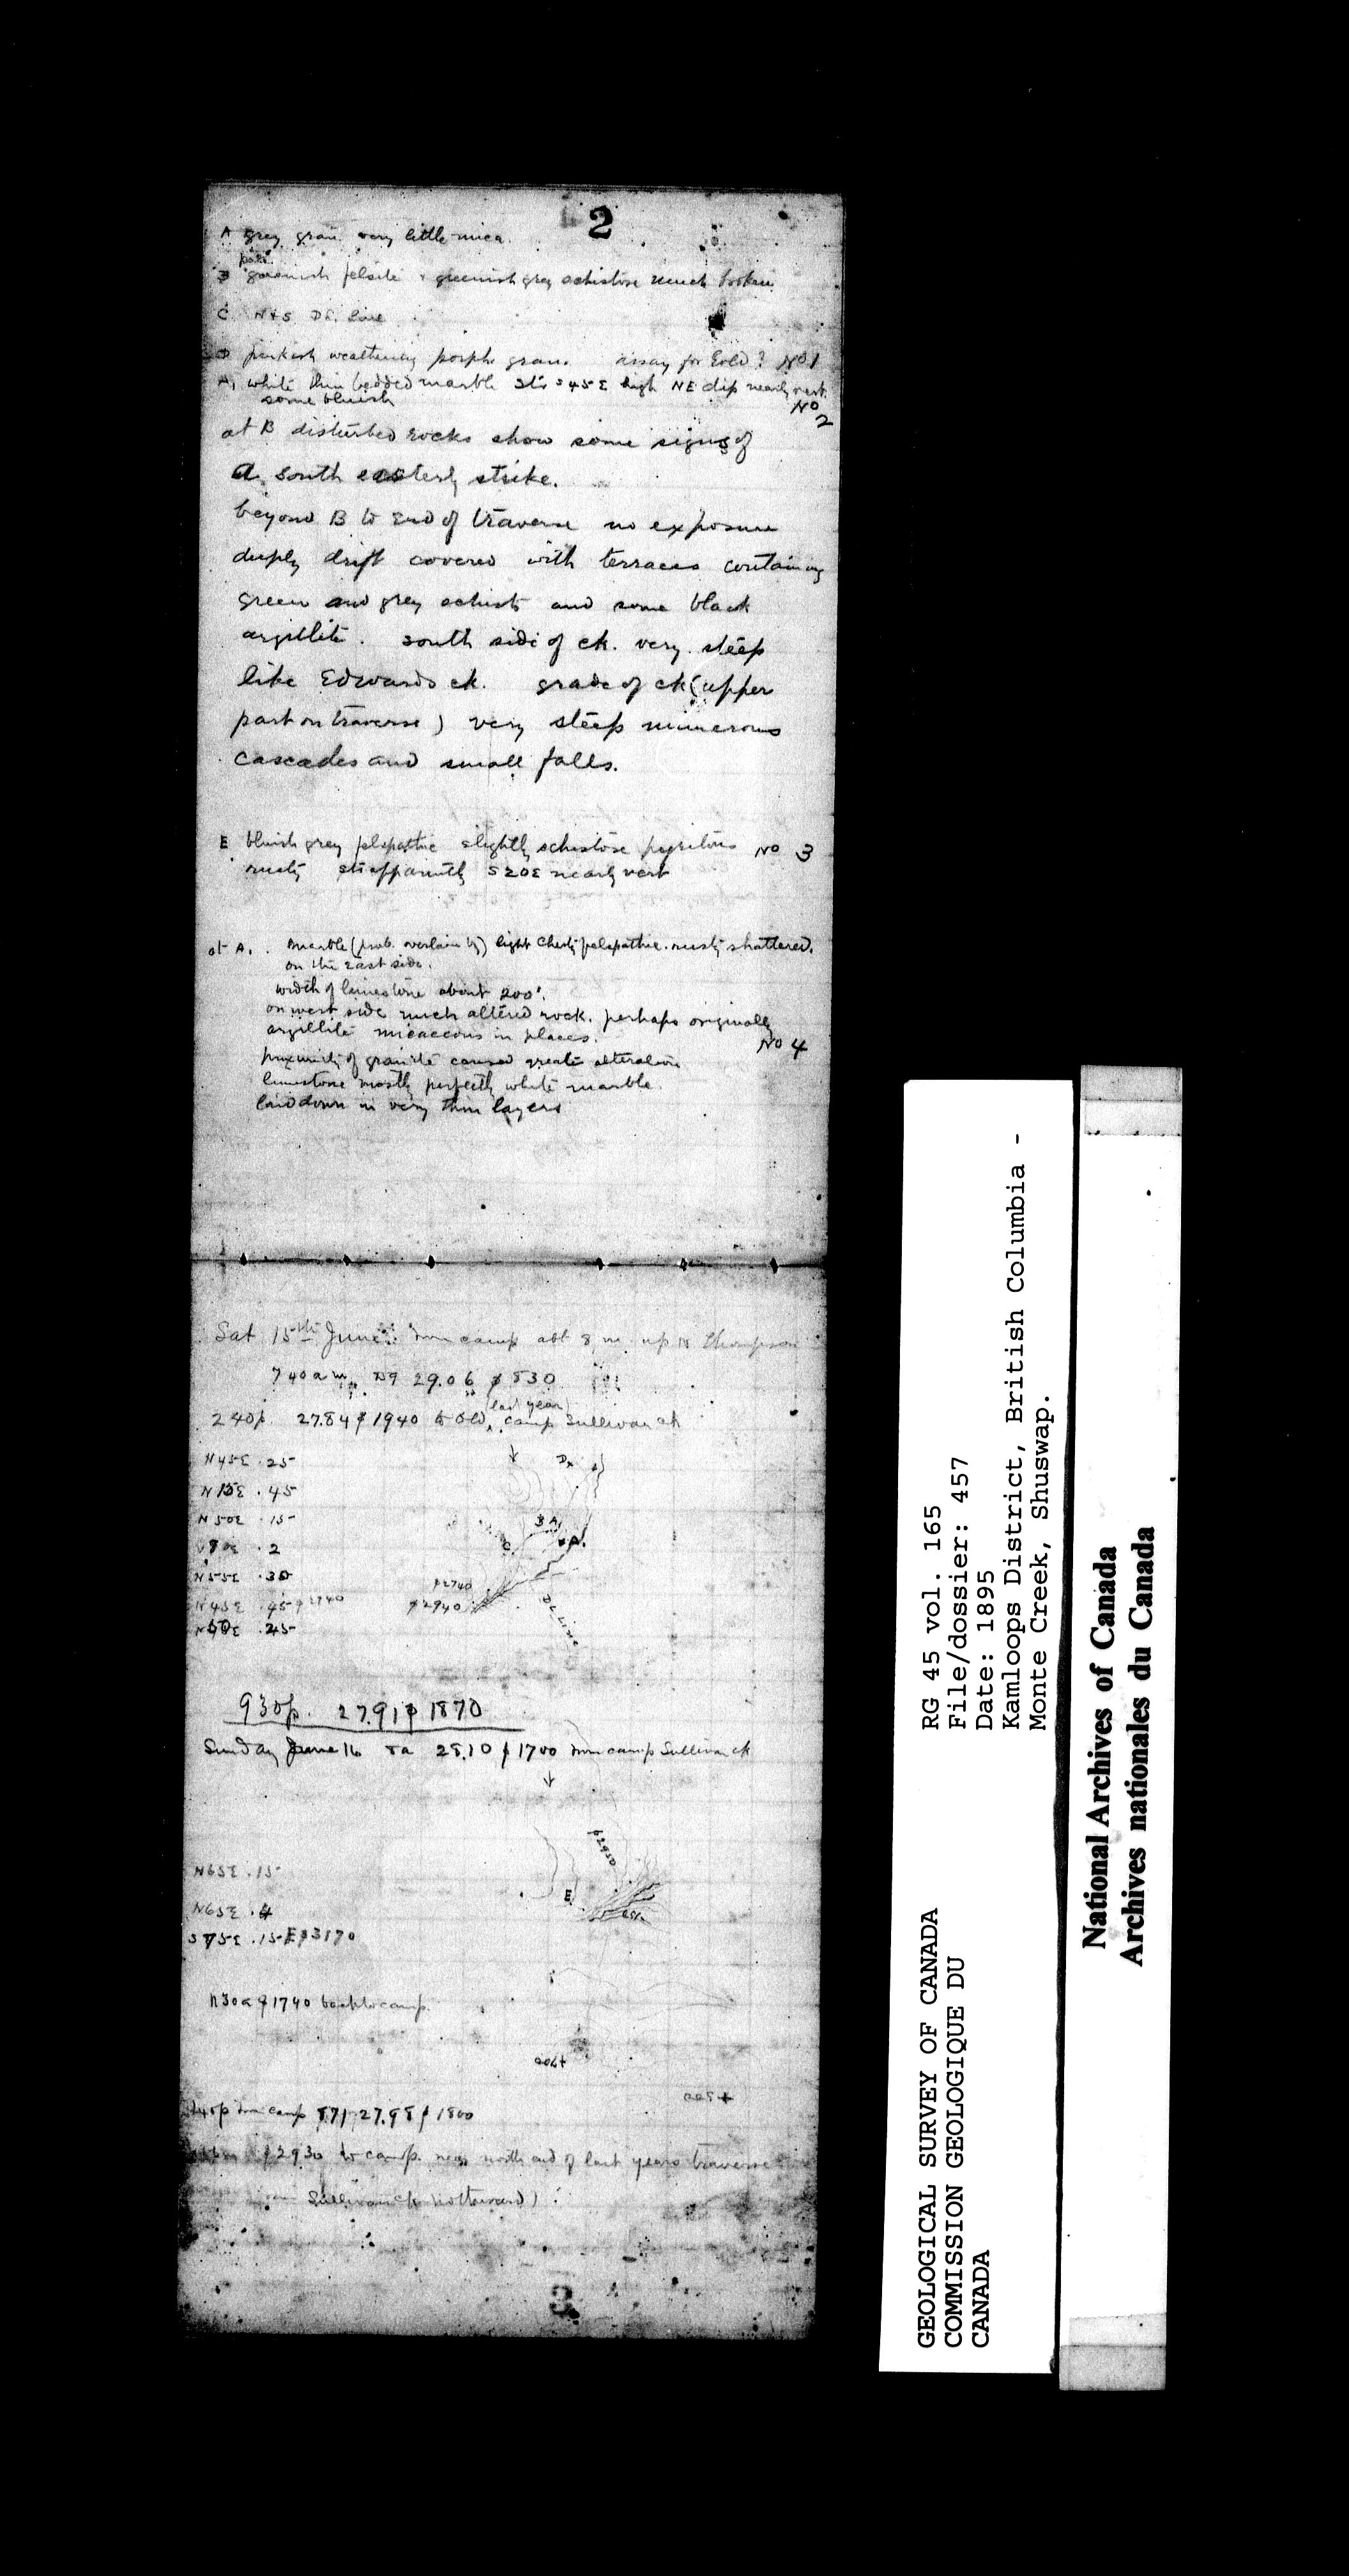 2
A grey gran. very little mica.
B greenish felsite & greenish grey schistose much broken
C N & S DL. line
D pinkish weathering porph. gran. assay for Gold? No 1
A, white thin bedded marble str S45E high NE dip nearly vert.
some bluish No 2
at B disturbed rocks show some signs of
a south easterly strike.
beyond B to end of traverse no exposure
deeply drift covered with terraces containing
green and grey schists and some black
argillite. south side of ck. very steep
like Edwards ck. grade of ck (upper
part on traverse) very steep numerous
cascades and small falls.
E bluish grey felspathic slightly schistose pyritous No 3
rusty str apparently S20E nearly vert
at A, marble (prob. overlain by) light cherty felspathic. rusty shattered.
on the East side.
width of limestone about 200'.
on west side much altered rock. perhaps originally
argillite micaceous in places. No 4
proximity of granite caused greate alteration
limestone mostly perfectly white marble.
laid down in very thin layers
Sat 15th June. from camp abt 8 m. up N Thompson
740 a m 29.06 ɸ 830
(last year)
240p. 27.84 ɸ 1940 to old camp Sullivan ck
N45E .25
N15E .45
N50E .15
.2
N55E .30
N45E .45 ɸ 2740
.25
D x
B A,
C
x A
ɸ2740
ɸ2940
DL Line
930p. 27.91 ɸ 1870
Sunday June 16 8a 28.10 ɸ 1700 from camp Sullivan ck
ɸ2950
N65E .15
E
N65E .4
S75E .15 E ɸ3170
1130a ɸ 1740 back to camp.
+700
+500
from camp 27.98 ɸ 1800
ɸ2930 to camp. near north end of last years traverse
Sullivan ck northward).
3
RG 45 vol. 165
File/dossier: 457
Date: 1895
Kamloops District, British Columbia -
Monte Creek, Shuswap.
GEOLOGICAL SURVEY OF CANADA
COMMISSION GEOLOGIQUE DU
CANADA
National Archives of Canada
Archives nationales du Canada